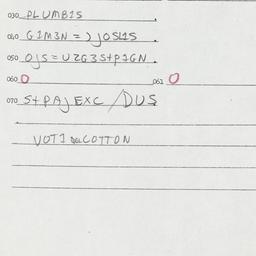 030 PLUMBIS
040 GIM3N = ) JOSL1S
050 OJS = U2G3S+P1GN.
060 O 061 O
070 S+PAJEXC / DUS
VOTI COTTON